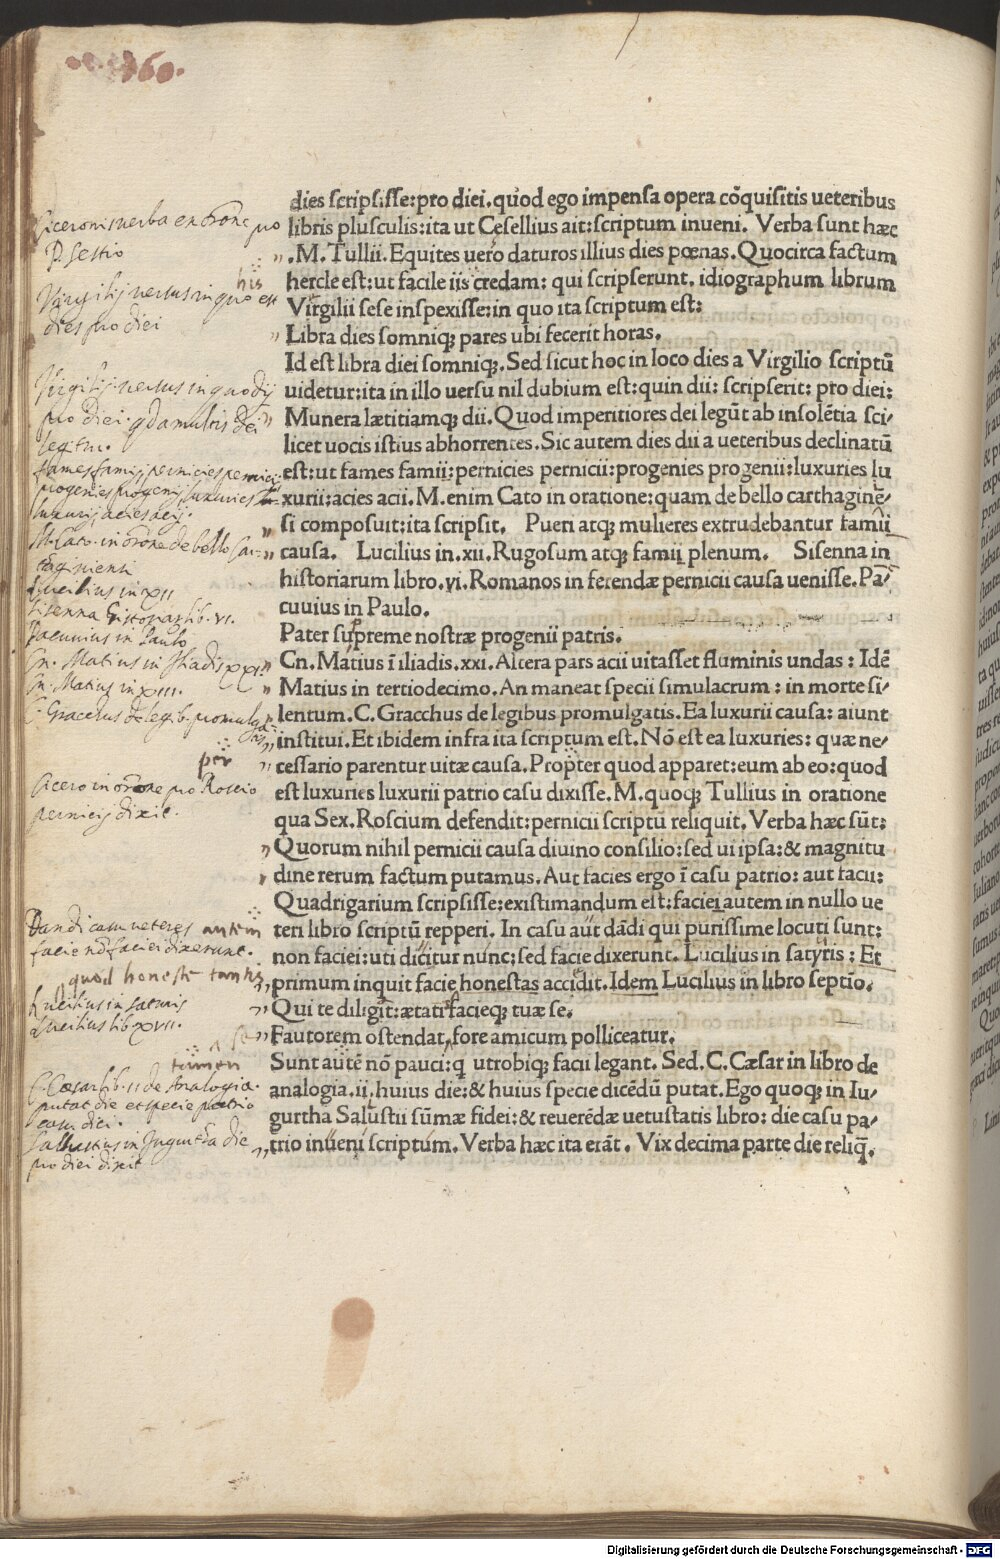 160.
dies scripsisse:pro diei.quod ego impensa opera cōquisitis ueteribus
libris plusculis:ita ut Cesellius ait:scriptum inueni. Verba sunt hæc
.M.Tullii.Equites uero daturos illius dies pœnas.Quocirca factum
hercle est:ut facile iis credam: qui scripserunt. idiographum librum
Virgilii sese inspexisse:in quo ita scriptum est:
Libra dies somniq; pares ubi fecerit horas.
Id est libra diei somniq;.Sed sicut hoc in loco dies a Virgilio scriptū
uidetur:ita in illo uersu nil dubium est:quin dii: scripserit: pro diei:
Munera lætitiamq; dii.Quod imperitiores dei legūt ab insolētia sci-
licet uocis istius abhorrentes.Sic autem dies dii a ueteribus declinatū
est:ut fames famii:pernicies pernicii:progenies progenii:luxuries lu
xurii:acies acii.M.enim Cato in oratione:quam de bello carthaginē-
si composuit:ita scripsit. Pueri atq; mulieres extrudebantur famii
causa. Lucilius in.xii.Rugosum atq; famii plenum. Sisenna in
historiarum libro.vi.Romanos in ferendæ pernicii causa uenisse.Pa-
cuuius in Paulo.
Pater supreme nostræ progenii patris.
Cn.Matius ī iliadis.xxi.Altera pars acii uitasset fluminis undas : Idē
Matius in tertiodecimo.An maneat specii simulacrum : in morte si-
lentum.C.Gracchus de legibus promulgatis.Ea luxurii causa: aiunt
institui.Et ibidem infra ita scriptum est.Nō est ea luxuries: quæ ne-
cessario parentur uitæ causa.Propter quod apparet:eum ab eo:quod
est luxuries luxurii patrio casu dixisse.M.quoq; Tullius in oratione
qua Sex.Roscium defendit:pernicii scriptū reliquit. Verba hæc sūt:
Quorum nihil pernicii causa diuino consilio:sed ui ipsa:& magnitu
dine rerum factum putamus.Aut facies ergo ī casu patrio: aut facii:
Quadrigarium scripsisse:existimandum est:faciei autem in nullo ue
teri libro scriptū repperi. In casu aūt dādi qui purissime locuti sunt:
non faciei:uti dicitur nunc:sed facie dixerunt. Lucilius in satyris : Et
primum inquit facie honestas accidit.Idem Lucilius in libro septio.
Qui te diligit:ætati facieq; tuæ se.
Fautorem ostendat fore amicum polliceatur.
Sunt autē nō pauci:q utrobiq; facii legant. Sed.C.Cæsar in libro de
analogia.ii.huius die:& huius specie dicēdū putat.Ego quoq; in Iu-
gurtha Salustii sūmæ fidei:& reuerēdæ uetustatis libro: die casu pa-
trio inueni scriptum. Verba hæc ita erāt. Vix decima parte die reliq̄.
Ciceronis verba en orōne pro
P. Sestio
his
Virgilij versus in quo est
dies pro diei
Virgilij versus in quo dij
pro diei. qd a multis dei
legitur.
fames famij, pernicies pernicij
progenies progenij luxuries
luxurij acies acij.
M. Cato. in orōne de bello Car-
thaginensi
Lucilius in XII
Sisenna historiar. lib. VI.
Pacuuius in Paulo
Cn. Matius in Iliadis XXI
Cn. Matius in XIII.
C. Gracchus de legib. promulga-
tis
per
Cicero in orōne pro Roscio
pernicij dixit.
Dandi casu veteres
facie nō faciei dixerunt.
autem
quod honeste
Lucilius in Saturis
Lucilius lib. XVII.
tamen
C. Cæsar lib. II de Analogia.
putat die et specie patrio
casu dici.
Sallustius in Jugurtha die
pro diei dixit
Digitalisierung gefördert durch die Deutsche Forschungsgemeinschaft - DFG